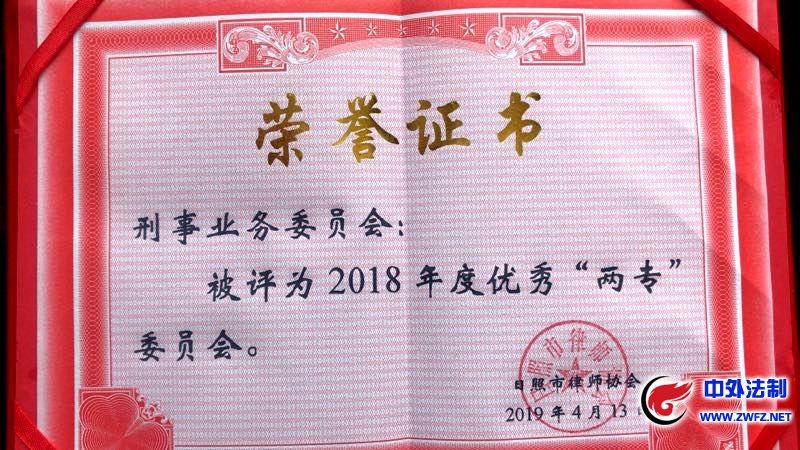 荣誉证书
刑事业务委员会：
被评为2018年度优秀“两专”
委员会。
日照市律师协会
日照市律师协会
2019年4月13日
中外法制
WWW.ZWFZ.NET